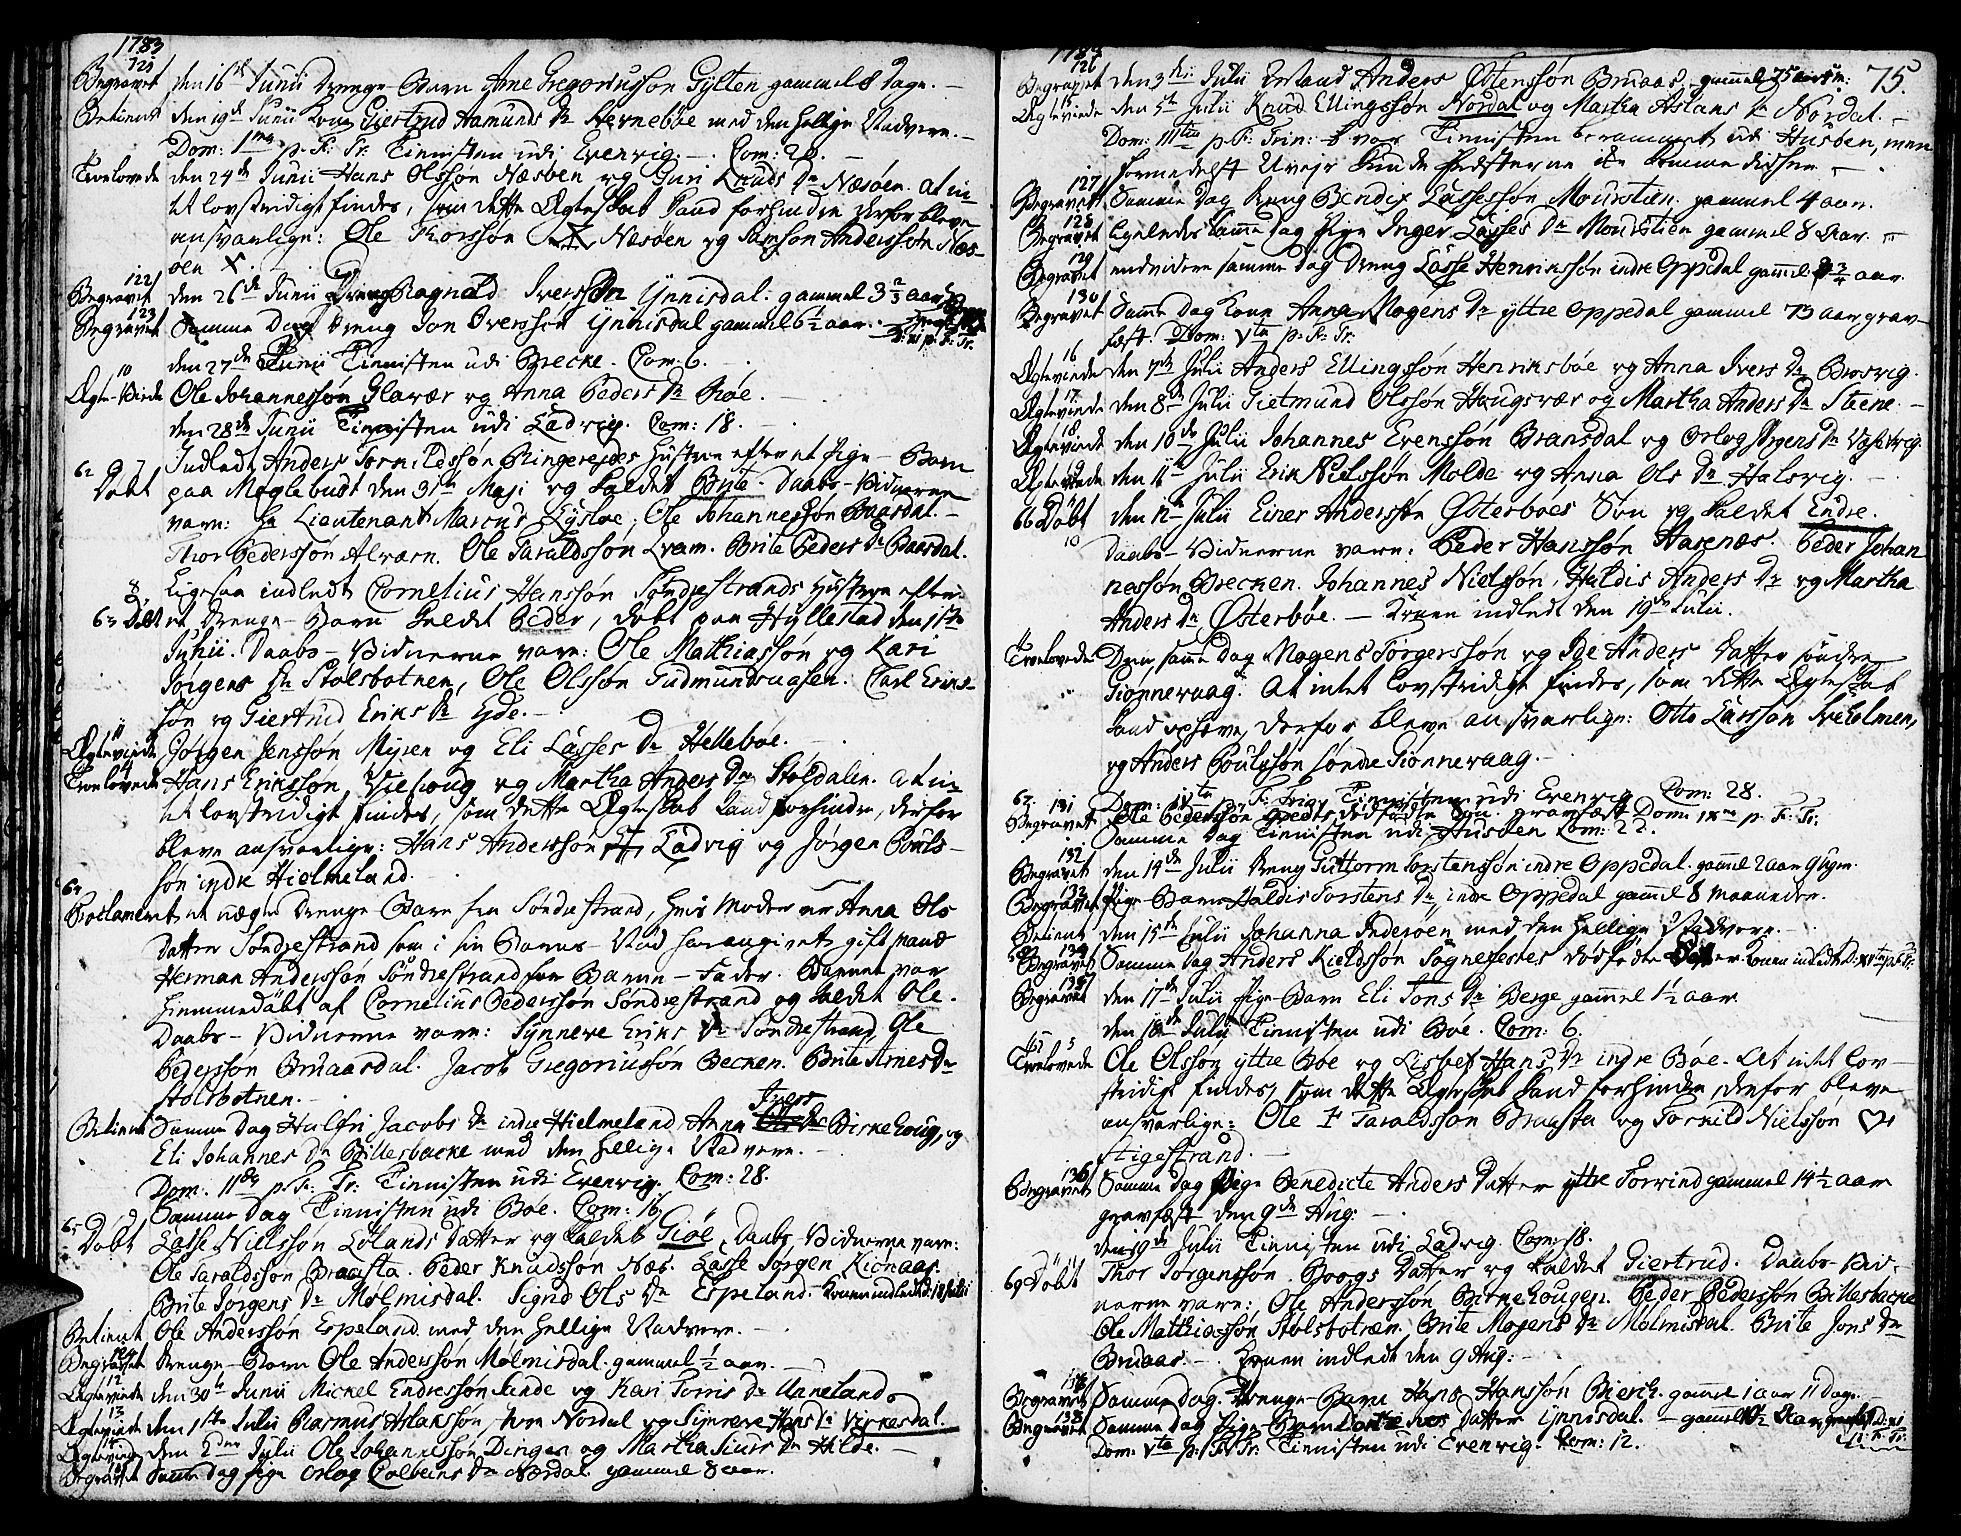 1783
121
Begravet den 16de Junii Drenge-Barn Arne Gregoriussøn Gylten gammel 8 Dage.
Betient den 19de Junii Kone Giertrud Aamunds Dr Hernebøe med den hellige Nadvere.
Dom: 1ma p. F: Tr: Tienisten udi Evenvig. Com: 20.
Troelovede den 24de Junii Hans Olssøn Næsøen og Guri Knuds Dr Næsøen. At in-
tet lovstridigt findes, som dette Ægteskab kand forhindre derfor bleve
ansvarlige: Ole Thorssøn Næsøen og Samson Anderssøn Næs-
øen X.
122
Begravet den 26de Junii Dreng Ragnald Iverssøn Ynnisdal. gammel 3 2/3 aar
123
Begravet Samme Dag Dreng Jon Iverssøn Ynnisdal gammel 6 1/2 aar.
den 27de Junii Tienisten udi Brecke. Com: 6.
10
Ægte-Viede Ole Johannessøn Glavær og Anna Peders Dr Røe.
den 28de Junii Tienisten udi Ladvig. Com: 18.
Indledt Anders Tornildssøn Ringereides Hustru efter et Pige-Barn
62 Døbt paa Møglebust den 31te Maji og kaldet Brite. Daabs-Vidnerne
vare: Hr Lieutenant Marcus Lysloe, Ole Johannessøn Baasdal.
Thor Pederssøn Alværn. Ole Taraldssøn Qvam. Brite Peders Dr Baasdal.
8 Ligesaa indledt Cornelius Hanssøn Søndrestrands Hustru efter
63 Døbt et Drenge-Barn kaldet Peder, døbt paa Hyllestad den 1ste
Junii. Daabs-Vidnerne vare: Ole Mathiassøn og Kari
Jørgens Dr Stolsbotnen, Ole Olssøn Gudmundsvaagen. Carl Eriks-
søn og Giertrud Eriks Dr Eyde.
11
Ægteviede Jørgen Jenssøn Myren og Eli Lasses Dr Hellebøe.
Troelovede Hans Erikssøn Viesoug og Martha Anders Dr Støldalen. At in-
tet lovstridigt findes, som dette Ægteskab kand forhindre, derfor
bleve ansvarlige: Hans Anderssøn Ladvig og Jørgen Pouls-
søn indre Hielmeland.
64
Proclameret et uægte Drenge-Barn fra Søndrestrand, hvis Moder er Anna Ols
Datter Søndrestrand som i sin Barns-Nød har angivet gift Mand
Herman Anderssøn Søndrestrand for Barne-Fader. Barnet var
hiemmedøbt af Cornelius Pederssøn Søndrestrand og kaldet Ole.
Daabs-Vidnerne vare: Synneve Eriks Dr Søndrestrand, Ole
Pederssøn Bruaasdal. Jacob Gregoriussøn Becken. Brite Arnes Dr
Stolsbotnen.
Betient Samme Dag Halfri Jacobs Dr indre Hielmeland, Anna Ivers Dr Birkehoug, og
Eli Johannes Dr Billesbacke med den hellige Nadvere.
Dom: IIda p. F: Tr: Tienisten udi Evenvig. Com: 28.
Samme Dag Tienisten udi Bøe. Com: 16.
65 Døbt Lasse Nielssøn Lølands Datter og kaldet Giøe. Daabs-Vidnerne vare:
Ole Taraldssøn Braasta. Peder Knudssøn Næs. Lasse Jørgen Kionaas.
Brite Jørgens Dr Mølmisdal. Sigrid Ols Dr Espeland. Konen indledt d: 10 Julii
Betient Ole Anderssøn Espeland med den hellige Nadvere.
124
Begravet Drenge-Barn Ole Anderssøn Mølmisdal. gammel 1/2 aar.
12
Ægteviede den 30te Junii Mickel Endressøn Sande og Kari Torris Dr Anneland
13
Ægteviede den 1ste Julii Rasmus Aslakssøn Nordal og Synneve Hans Dr Virkesdal.
14
Ægteviede den 2den Julii Ole Johannessøn Dingen og Martha Siurs Dr Hilde.
Begravet Samme Dag Pige Orlog Colbeins Dr Nordal gammel 8 aar.

1783
75.
126
Begravet den 3die Julii Enkemand Anders Østenssøn Bruaas, gammel 75 aar
15
Ægteviede den 5te Julii Knud Ellingssøn Nordal og Martha Aslaks Dr Nordal.
Dom: IIItia p. F: Trin: var Tienisten berammet udi Husøen, men
formedelst Uvejr kunde Præsterne ikke komme didhen.
127
Begravet Samme Dag Dreng Bendix Lassessøn Mourstien. gammel 4 aar.
128
Begravet Ligeledes samme Dag Pige Inger Lasses Dr Mourstien gammel 8 Aar.
129
Begravet endvidere samme Dag Dreng Lasse Henrikssøn indre Oppedal gammel 3/4 aar
130
Begravet Samme Dag Kone Anna Mogens Dr yttre Oppedal gammel 73 aar grav-
fæst. Dom: Vta p. F: Tr:
16
Ægteviede den 7de Julii Anders Ellingssøn Henriksbøe og Anna Ivers Dr Brosvig.
17
Ægteviede den 8de Julii Gietmund Olssøn Haugsvær og Martha Anders Dr Steene.
18
Ægteviede den 10de Julii Johannes Evenssøn Bransdal og Orlog Jørgens Dr
Ægteviede den 11te Julii Erik Nielssøn Molde og Anna Ols Dr Halsvig.
66 Døbt den 12te Julii Einer Anderssøn Østerbøes Søn og kaldet Endre.
10
Daabs-Vidnerne vare: Peder Hanssøn Harenæs. Peder Johan-
nessøn Brecken. Johannes Nielssøn, Haldis Anders Dr og Martha
Anders Dr Østerbøe. — Konen indledt den 19de Julii.
Troelovede Den samme Dag Mogens Torgerssøn og Ide Anders Datter søndre
Giønnevaag. At intet lovstridigt findes, som dette Ægteskab
kand ophæve, derfor bleve ansvarlige: Otto Larssøn Sveholmen,
og Anders Poulssøn søndre Giønnevaag.
Dom: IVta p. F: Trin: Tienisten udi Evenvig. Com: 28.
67 131
Begravet Ole Pederssøn dødfødte Søn. gravfæst Dom: IXna p. F: Tr:
Samme Dag Tienisten udi Husøen Com: 22.
132
Begravet den 14de Julii Dreng Guttorm Torstenssøn indre Oppedal. gammel 2 aar 9 Uger.
133
Begravet Pige-Barn Haldis Torstens Dr, indre Oppedal gammel 8 Maaneder.
Betient den 15de Julii Johanna Inderøen med den hellige Nadvere.
134
Begravet Samme Dag Anders Kieldssøn Sognefestes dødfødte Datter. Konen indledt D. XVta p. F: Tr.
135
Begravet den 17de Julii Pige-Barn Eli Tons Dr Berge gammel 1 1/2 aar.
den 18de Julii Tienisten udi Bøe. Com: 6.
Troelovede Ole Olssøn yttre Bøe og Lisbet Hans Dr indre Bøe. At intet lov-
stridigt findes, som dette Ægteskab kand forhindre, derfor bleve
ansvarlige: Ole Taraldssøn Braasta og Tornild Nielssøn
Stigestrand.
136
Begravet Samme Dag Pige Benedicte Anders Datter yttre Forvind gammel 14 1/2 aar
gravfæst den 9de Aug:
den 19de Julii Tienisten udi Ladvig. Com: 18.
69 Døbt Thor Jørgenssøn Boogs Datter og kaldet Giertrud. Daabs-Vid-
nerne vare: Ole Anderssøn Birkehougen. Peder Pederssøn Billesbacke
Ole Mathiassøn Stolsbotnen. Brite Mogens Dr Mølmisdal. Brite Jons Dr
Bruaas. — Konen indledt den 9 Aug:
Begravet Samme Dag. Drenge-Barn Hans Hanssøn Bierch. gammel 1 aar 11 Dage.
138
Begravet Samme Dag Pige-Barn Datter Ynnisdal. gammel
Dom: Vta p. F: Tr: Tienisten udi Evenvig. Com: 12.